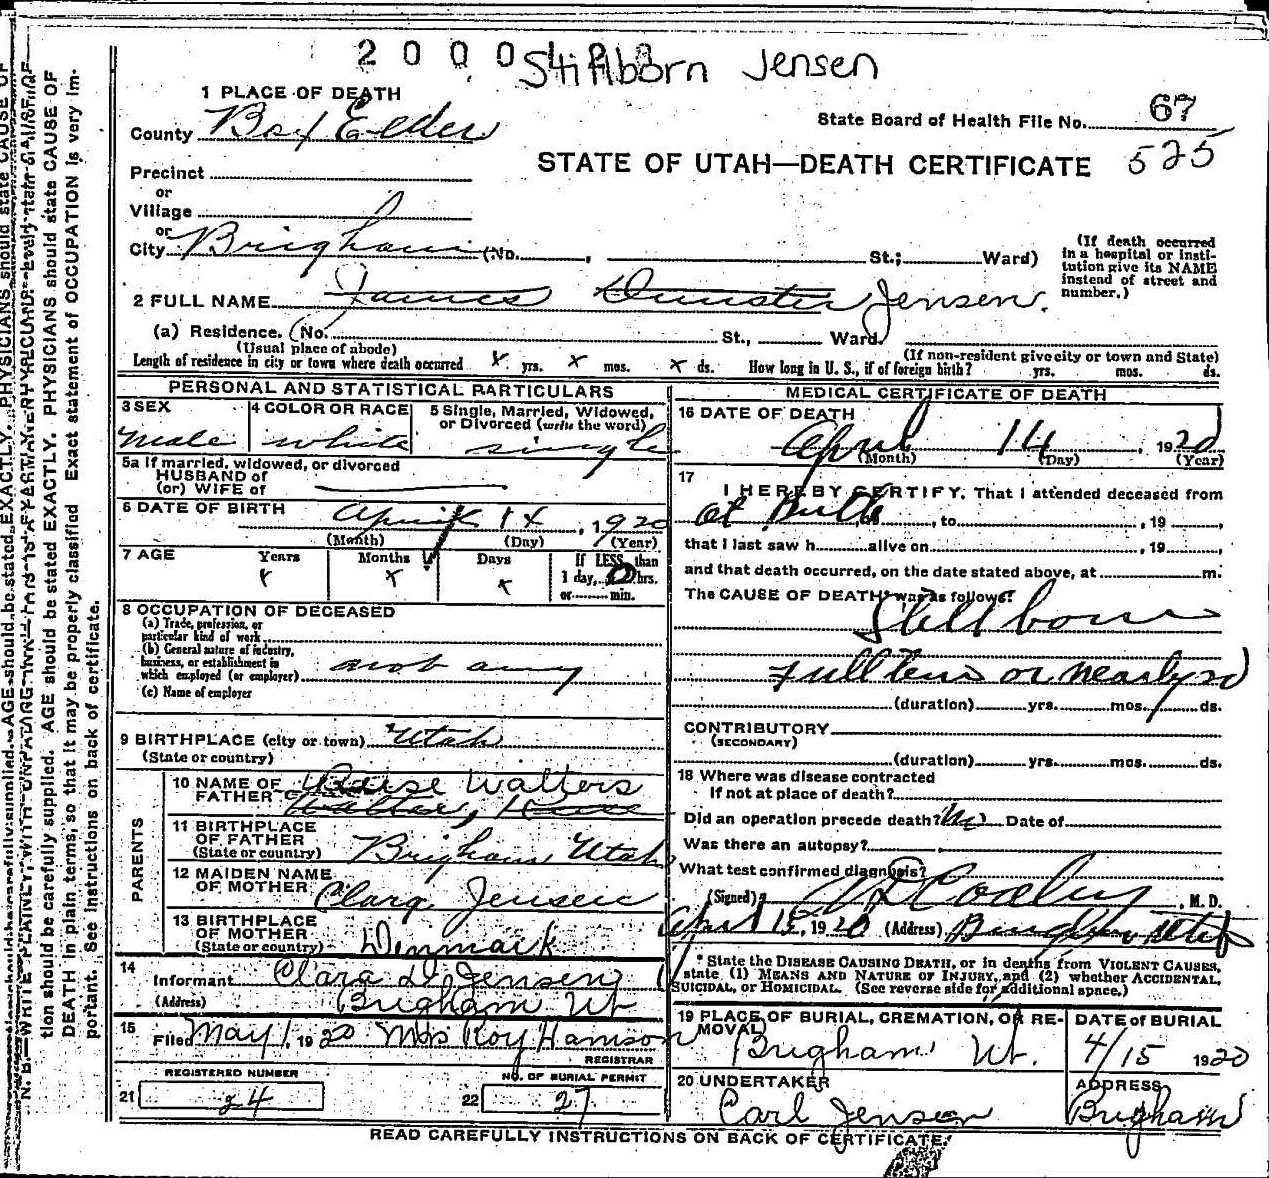 2 0 0 0
Stillborn Jensen
1 PLACE OF DEATH
County Box Elder
State Board of Health File No. 67
STATE OF UTAH—DEATH CERTIFICATE 525
Precinct
or
Village
or
City Brigham (No. , St.; Ward)
(If death occurred
in a hospital or insti-
tution give its NAME
instead of street and
number.)
2 FULL NAME James Dunster Jensen.
(a) Residence. (No. St., Ward.
(Usual place of abode) (If non-resident give city or town and State)
Length of residence in city or town where death occurred x yrs. x mos. x ds. How long in U. S., if of foreign birth? yrs. mos. ds.
PERSONAL AND STATISTICAL PARTICULARS
3 SEX 4 COLOR OR RACE 5 Single, Married, Widowed,
or Divorced (write the word)
male white single
5a If married, widowed, or divorced
HUSBAND of
(or) WIFE of
6 DATE OF BIRTH
April 14, 1920
(Month) (Day) (Year)
7 AGE Years Months Days If LESS than
x x x 1 day, 0 hrs.
or min.
8 OCCUPATION OF DECEASED
(a) Trade, profession, or
particular kind of work
(b) General nature of industry,
business, or establishment in
which employed (or employer) not any
(c) Name of employer
9 BIRTHPLACE (city or town) Utah
(State or country)
PARENTS
10 NAME OF
FATHER Walters
11 BIRTHPLACE
OF FATHER
(State or country) Brigham Utah
12 MAIDEN NAME
OF MOTHER Clara Jensen
13 BIRTHPLACE
OF MOTHER
(State or country) Denmark
14
Informant Clara D. Jensen
(Address) Brigham Ut
15
Filed May 1, 1920 Mrs Roy Hanison
REGISTRAR
REGISTERED NUMBER NO. OF BURIAL PERMIT
21 24 22 27
MEDICAL CERTIFICATE OF DEATH
16 DATE OF DEATH
April 14, 1920
(Month) (Day) (Year)
17
I HEREBY CERTIFY, That I attended deceased from
at Birth, to , 19 ,
that I last saw h alive on , 19 ,
and that death occurred, on the date stated above, at m.
The CAUSE OF DEATH* was as follows:
Still born
Full term or nearly so
(duration) yrs. mos. ds.
CONTRIBUTORY
(SECONDARY)
(duration) yrs. mos. ds.
18 Where was disease contracted
If not at place of death?
Did an operation precede death? No Date of
Was there an autopsy?
What test confirmed diagnosis?
(Signed) , M. D.
April 15, 1920 (Address) Brigham Utah
* State the DISEASE CAUSING DEATH, or in deaths from VIOLENT CAUSES,
state (1) MEANS AND NATURE OF INJURY, and (2) whether ACCIDENTAL,
SUICIDAL, or HOMICIDAL. (See reverse side for additional space.)
19 PLACE OF BURIAL, CREMATION, OR RE-
MOVAL DATE OF BURIAL
Brigham Ut. 4/15 1920
20 UNDERTAKER ADDRESS
Carl Jensen Brigham
READ CAREFULLY INSTRUCTIONS ON BACK OF CERTIFICATE.
tion should be carefully supplied. AGE should be stated EXACTLY. PHYSICIANS should state CAUSE OF
DEATH in plain terms, so that it may be properly classified. Exact statement of OCCUPATION is very im-
portant. See instructions on back of certificate.